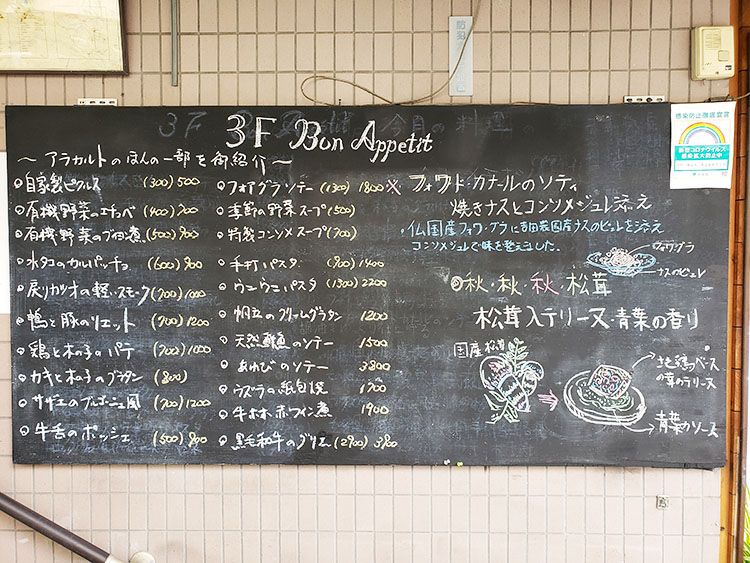 防犯
3F Bon Appetit
今月の料理
～アラカルトのほんの一部を御紹介～
◦自家製ピクルス (300) 500
◦有機野菜のエチュベ (400) 700
◦有機野菜のブロ煮 (500) 900
◦水タコのカルパッチョ (600) 900
◦戻りカツオの軽いスモーク (700) 1000
◦鴨と豚のリエット (700) 1200
◦鶏と木の子のパテ (700) 1000
◦カキと木の子のグラタン (800)
◦サザエのブルギニョン風 (700) 1200
◦牛舌のポッシェ (500) 800
◦フォアグラソテー (1300) 1800
◦季節の野菜スープ (500)
◦特製コンソメスープ (700)
◦手打パスタ (900) 1400
◦ウニウニパスタ (1300) 2200
◦帆立のクリームグラタン 1200
◦天然鯛のソテー 1500
◦あわびのソテー 3800
◦ウズラの紙包焼 1700
◦牛ホホ赤ワイン煮 1900
◦黒毛和牛のグリエ (2900) 3800
※フォワ・ド・カナールのソティ
焼きナスとコンソメジュレ添え
・仏国産フォワ・グラに吉田農園産ナスのピュレを添え
コンソメジュレで味を整えました。
フォワグラ
ナスのピュレ
◎秋・秋・秋・松茸
松茸入テリーヌ・青葉の香り
国産松茸
地鶏ベースの茸のテリーヌ
青葉のソース
感染防止徹底宣言
新型コロナウイルス
感染拡大防止中